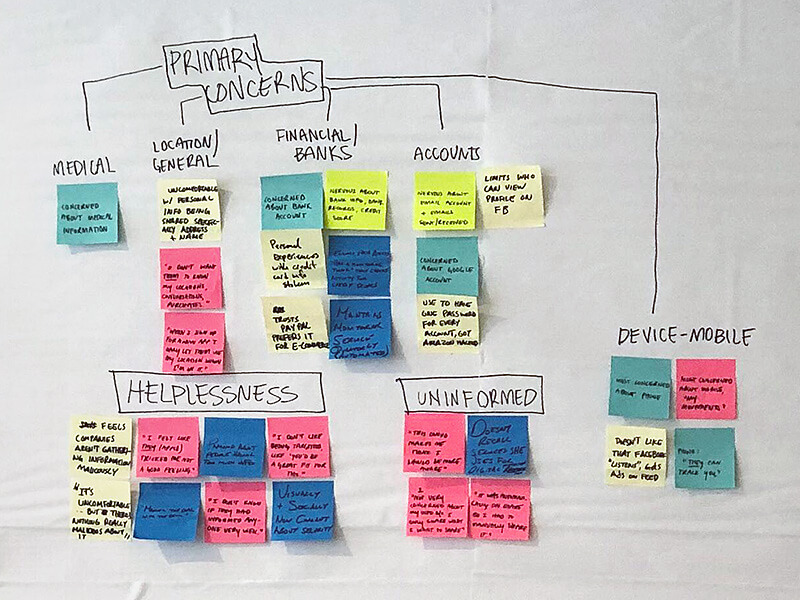 PRIMARY
CONCERNS
MEDICAL
CONCERNED
ABOUT MEDICAL
INFORMATION
LOCATION/
GENERAL
UNCOMFORTABLE
W/ PERSONAL
INFO BEING
SHARED
ADDRESS
+ NAME
"I DON'T WANT
THEM TO KNOW
MY LOCATIONS,
CONVERSATIONS,
PURCHASES."
"WHEN I SIGN UP
FOR A NEW APP I
ONLY LET THEM USE
MY LOCATION WHEN
I'M IN IT."
FINANCIAL/
BANKS
CONCERNED
ABOUT BANK
ACCOUNT
NERVOUS ABOUT
BANK INFO, BANK
RECORDS, CREDIT
SCORE
Personal
Experiences
with credit
card info
stolen
TRUSTS
PAYPAL
PREFERS IT
FOR E-COMMERCE
MAINTAINS
MONITORING
SERVICE
ACCOUNTS
NERVOUS ABOUT
EMAIL ACCOUNT
+ EMAILS
SENT/RECEIVED
LIMITS WHO
CAN VIEW
PROFILE ON
FB
CONCERNED
ABOUT GOOGLE
ACCOUNT
USE TO HAVE
ONE PASSWORD
FOR EVERY
ACCOUNT, GOT
AMAZON HACKED
DEVICE-MOBILE
MOST CONCERNED
ABOUT PHONE
MOST CONCERNED
ABOUT MOBILE,
DOESN'T LIKE
THAT FACEBOOK
"LISTENS", GETS
ADS ON FEED
PHONE:
"THEY CAN
TRACK YOU"
HELPLESSNESS
FEELS
COMPANIES
AREN'T GATHER-
ING INFORMATION
MALICIOUSLY
"I FELT LIKE
THEY (APPS)
TRICKED ME NOT
A GOOD FEELING."
ABOUT
PEOPLE HAVING
TOO MUCH INFO
"I DON'T LIKE
BEING TARGETED
LIKE 'YOU'D BE
A GREAT FIT FOR
THIS'"
"IT'S
UNCOMFORTABLE
-- BUT THERE'S
NOTHING REALLY
MALICIOUS ABOUT
IT"
"I DON'T KNOW
IF THEY HAD
INFORMED ANY-
ONE VERY WELL."
VISUALLY
+ SOCIALLY
NOW
ABOUT SECURITY
UNINFORMED
"THIS
MAKES ME
THINK I
SHOULD BE MORE
AWARE"
DOESN'T
RECALL
SERVICES SHE
USES FOR
DIGITAL
"NOT VERY
CONCERNED ABOUT
MY INFO AS I
ONLY SHARE WHAT
I WANT TO SHARE"
"IT WAS AUTOMATI-
CALLY ON
SO I HAD TO
MANUALLY
IT."